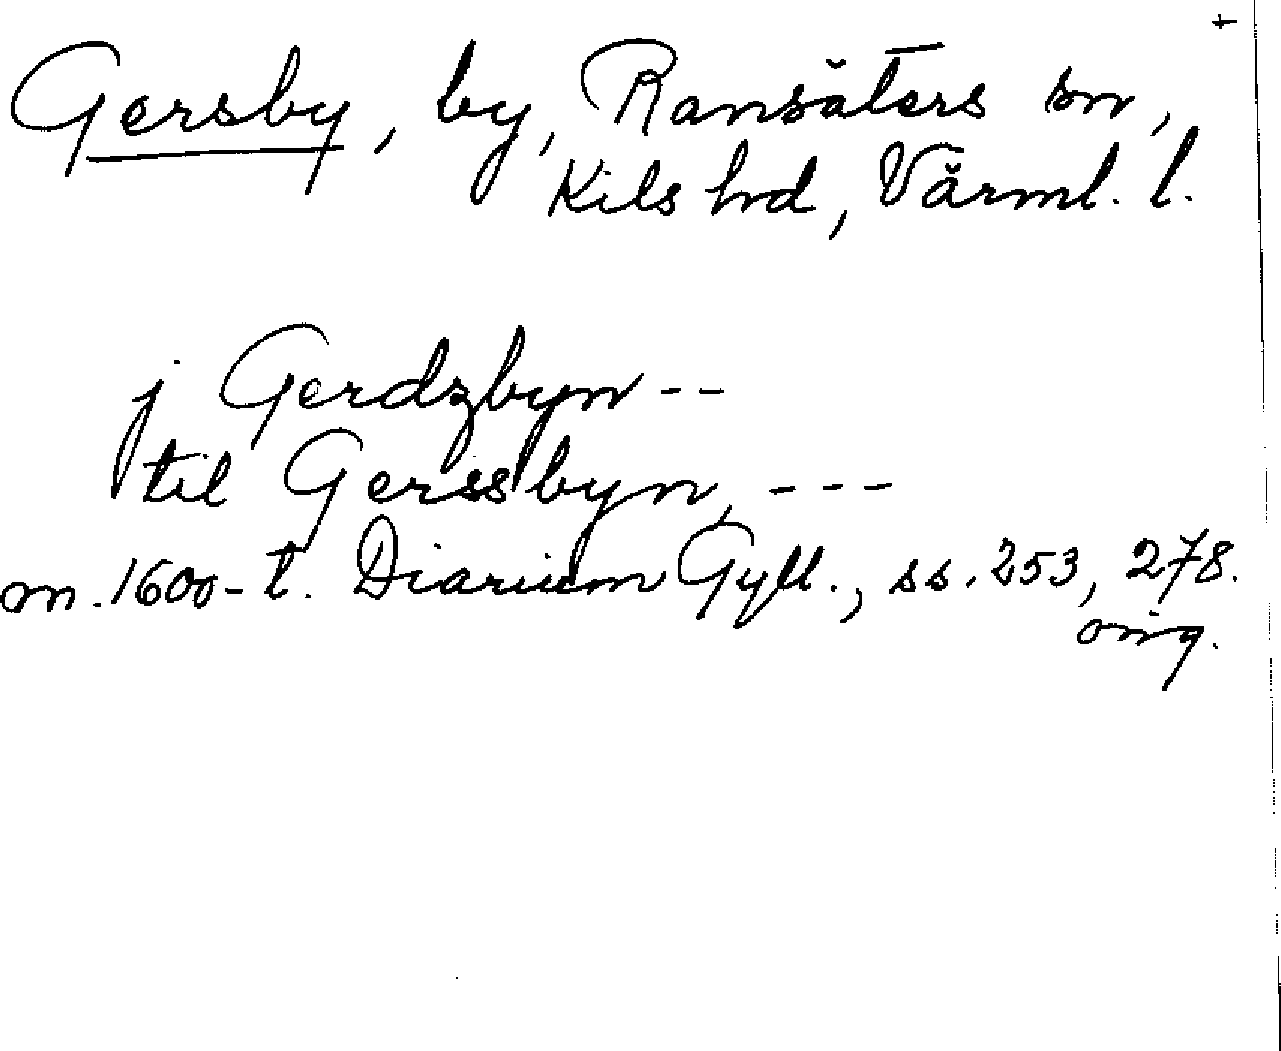 +
Gersby, by, Ransäters sn,
Kils hd, Värml. l.
j Gerdzbyn --
til Gerssbyn, ---
m. 1600-t. Diarium Gyll., ss. 253, 278.
orig.